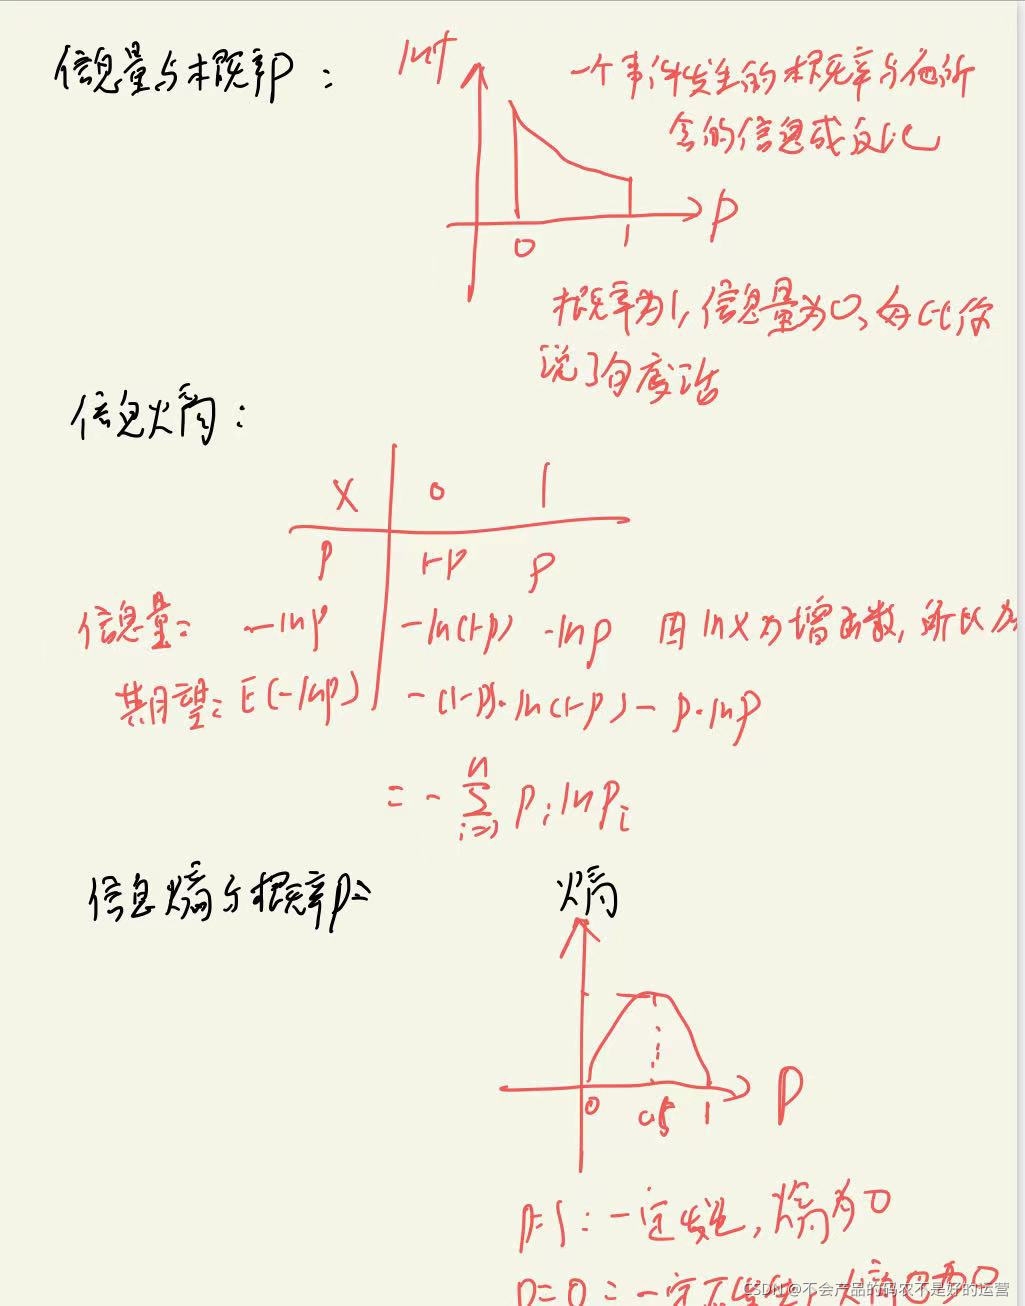 信息量与概率P：
Inf
一个事件发生的概率与他所
含的信息成反比
P
0 1
概率为1,信息量为0,好比你
说了句废话
信息熵：
X 0 1
P 1-P P
信息量： -lnp -ln(1-p) -lnp 因lnX为增函数,所以为
期望： E(-lnp) -(1-P)·ln(1-p) - p·lnp
= - n∑i=1 Pi ln Pi
信息熵与概率P：
熵
P
0 0.5 1
P=1：一定发生,熵为0
P=0：一定不发生,熵也为0
CSDN @不会产品的码农不是好的运营